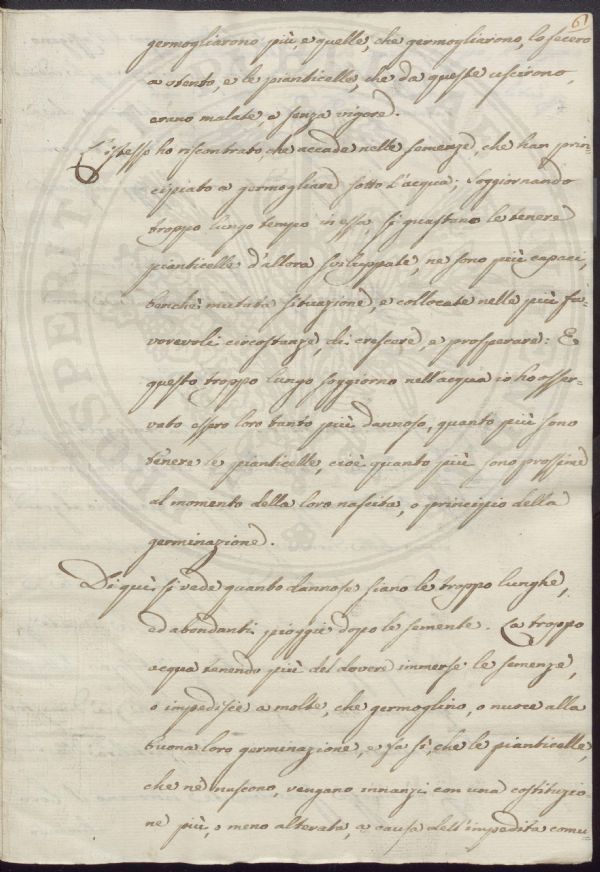 61
germogliarono più, e quelle, che germogliarono, lo fecero
a stento, e le pianticelle, che da queste uscirono,
erano malate, e senza vigore.
L'istesso ho riscontrato, che accade nelle semenze, che han prin-
cipiato a germogliare sotto l'acqua; Soggiornando
troppo lungo tempo in essa, si guastano le tenere
pianticelle d'allora sviluppate, ne sono più capaci,
benchè mutata situazione, e collocate nelle più fa-
vorevoli circostanze, di crescere, e prosperare: E
questo troppo lungo soggiorno nell'acqua io ho osser-
vato essere loro tanto più dannoso, quanto più sono
tenere le pianticelle, cioè quanto più sono prossime
al momento della loro nascita, o principio della
germinazione.
Di quì si vede quanto dannose siano le troppo lunghe,
ed abondanti pioggie dopo le semente. La troppo
acqua tenendo più del dovere immerse le semenze,
o impedisce a molte, che germoglino, o nuoce alla
buona loro germinazione, e fa sì, che le pianticelle,
che ne nascono, vengano innanzi con una costituzio
ne più, o meno alterata, a causa dell'impedita comu-
PROSPERITATI PUBLICAE